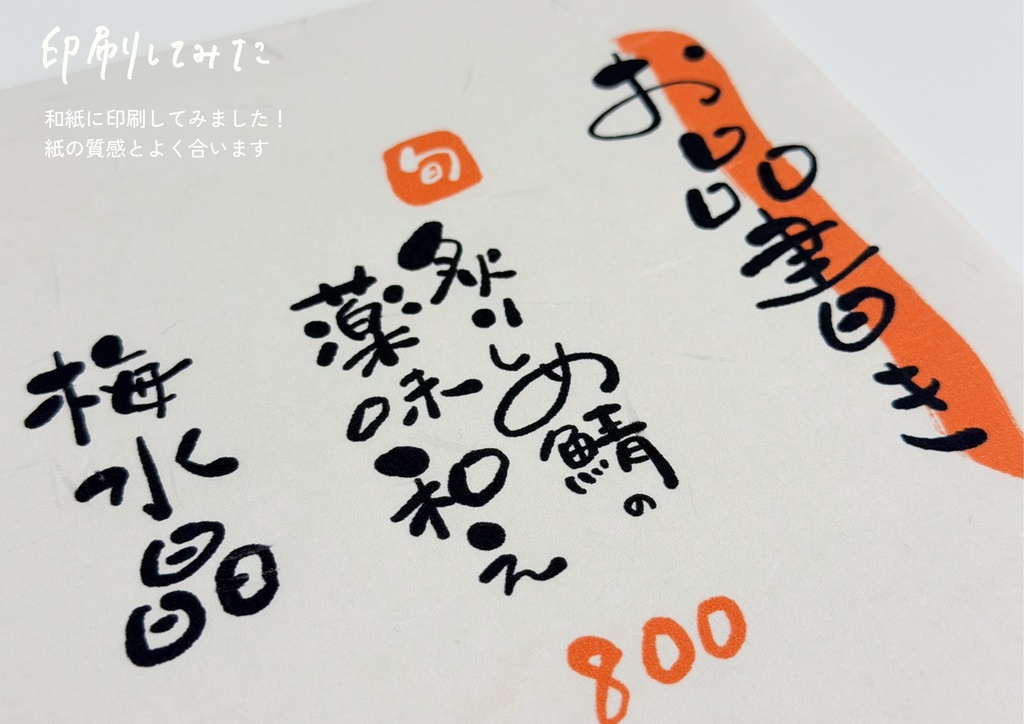 印刷してみた
和紙に印刷してみました！
紙の質感とよく合います
お品書き
旬
炙りしめ鯖の
薬味和え
800
梅水晶